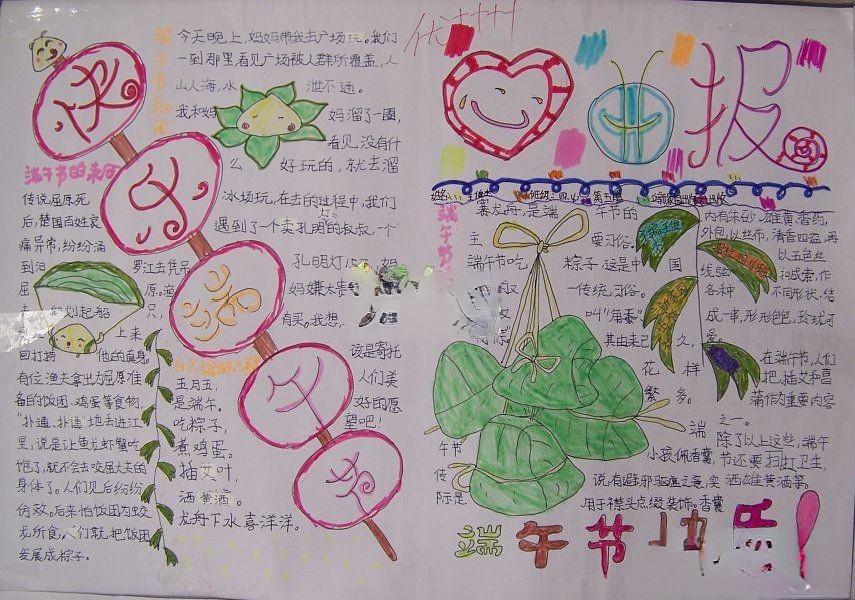 优++++
小报
快
乐
端
午
节
端午节的来历
传说屈原死
后,楚国百姓哀
痛异常,纷纷涌
到汨罗江去凭吊
屈原。渔
夫们划起船只,
上来
回打捞他的真身。
有位渔夫拿出为屈原准
备的饭团、鸡蛋等食物,
“扑通、扑通”地丢进江
里,说是让鱼龙虾蟹吃
饱了,就不会去咬屈大夫的
身体了。人们见后纷纷
仿效。后来怕饭团为蛟
龙所食,人们就把饭团
发展成粽子。
今天晚上,妈妈带我去广场玩。我们
一到那里看见广场被人群所覆盖,人
山人海,水泄不通。
我和妈妈溜了一圈,
看见没有什
么好玩的,就去溜
冰场玩,在去的过程中,我们
遇到了一个卖孔明的叔叔,一个
孔明灯
妈嫌太贵
有买。我想,
该是寄托
人们美
好的愿
望吧!
五月五,
是端午。
吃粽子,
煮鸡蛋。
插艾叶,
洒黄酒。
龙舟下水喜洋洋。
端午节
赛龙舟,是端午节的
主要习俗。
端午节吃粽子,这是中国
一传统习俗。
叫“角黍”
其由来已久,
花样
繁多。
内有朱砂、雄黄、香药,
外包以丝布,清香四溢,再
以五色丝
线弦扣成索,作
各种不同形状,结
成一串,形形色色,玲珑可
爱。
在端午节,人们
把插艾和菖
蒲作为重要内容
之一。
除了以上这些,端午
节还要扫打卫生,
洒雄黄酒等。
端午节
小孩佩香囊,
传说有避邪驱瘟之意,实
际是用于襟头点缀装饰。香囊
端午节快乐!